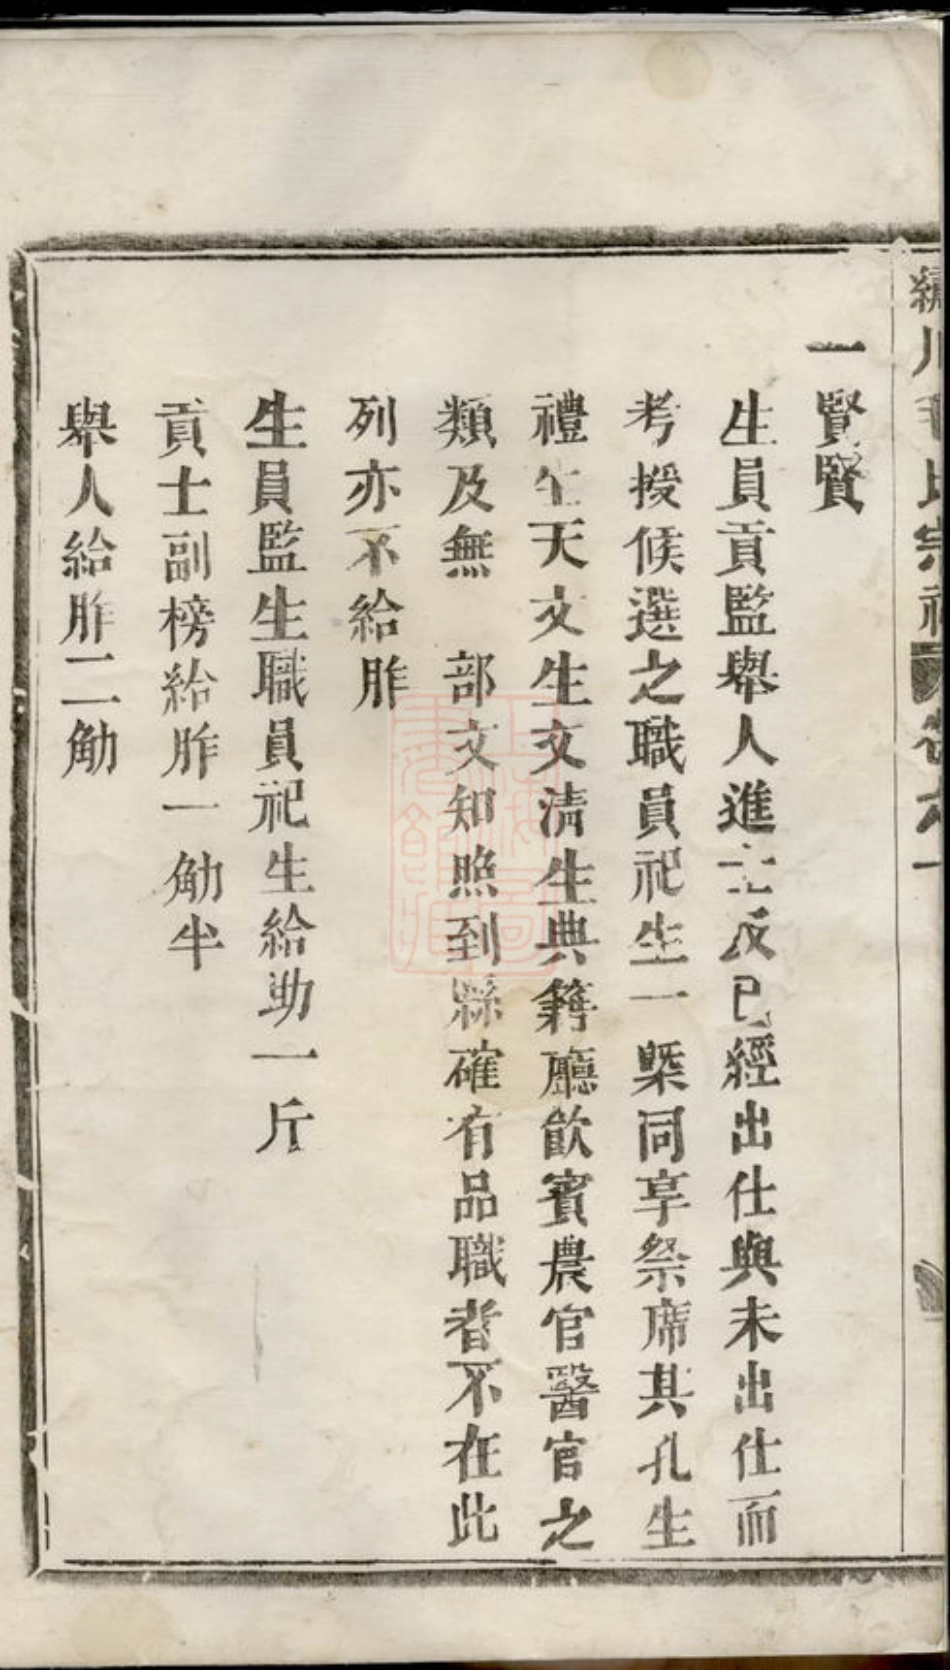 川氏宗祠 卷六 一
一賢賢
生員貢監舉人進士及已經出仕與未出仕而
考授候選之職員祀生一槩同享祭席其孔生
禮生天文生文清生典籍廳飲賓農官醫官之
類及無　部文知照到縣確有品職者不在此
列亦不給胙
生員監生職員祀生給胙一斤
貢士副榜給胙一觔半
舉人給胙二觔